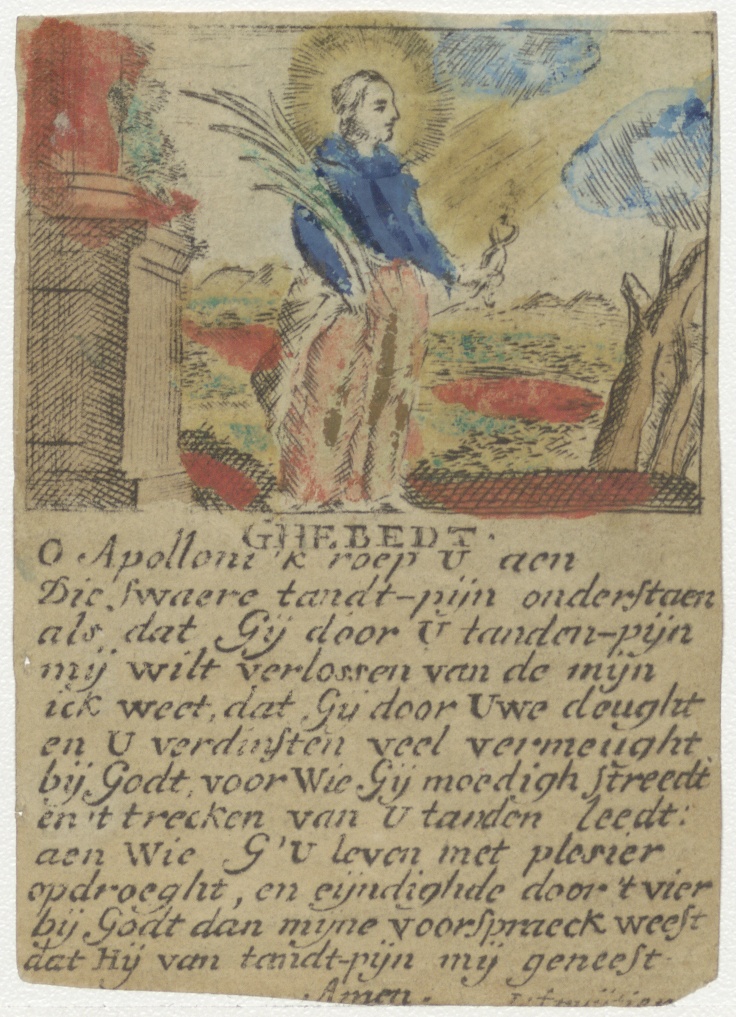 GHEBEDT.
O Apolloni 'k roep U aen
Die swaere tandt-pijn onderstaen
als dat Gij door U tanden-pijn
mij wilt verlossen van de mijn
ick weet, dat Gij door Uwe deught
en U verdinsten veel vermeught
bij Godt, voor Wie Gij moedigh streedt
en 't trecken van U tanden leedt:
aen Wie G'U leven met plesier
opdroeght, en eijndighde door 't vier
bij Godt dan mijne voorspraeck weest
dat Hij van tandt-pijn mij geneest
Amen.